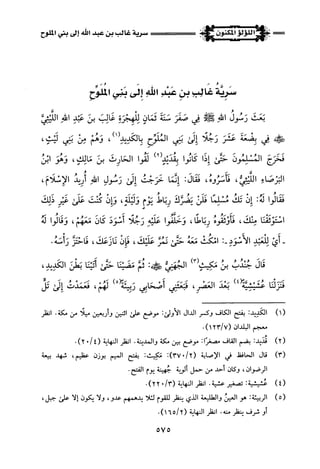 سرية غالب بن عبد الله إلى بني الملوح
اللؤلؤ المكنون
سَرِيَّةُ غَالِبِ بنِ عَبْدِ اللهِ إلى بَنِي المُلَوِّحِ
بَعَثَ رَسُولُ اللهِ ﷺ في صَفَرَ سَنَةَ ثَمَانٍ لِلْهِجْرَةِ غَالِبَ بنَ عَبْدِ اللهِ اللَّيْثِيَّ
ﷺ في بِضْعَةَ عَشَرَ رَجُلًا إلَى بَنِي المُلَوِّحِ بِالكَدِيدِ(١)، وَهُمْ مِنْ بَنِي لَيْثٍ،
فَخَرَجَ المُسْلِمُونَ حَتَّى إِذَا كَانُوا بِقُدَيْدٍ(٢) لَقُوا الحَارِثَ بنَ مَالِكٍ، وَهُوَ ابْنُ
البَرْصَاءِ اللَّيْثِيُّ، فَأَسَرُوهُ، فَقَالَ: إِنَّمَا خَرَجْتُ إِلَى رَسُولِ اللهِ أُرِيدُ الإِسْلَامَ،
فَقَالُوا لَهُ: إِنْ تَكُ مُسْلِمًا فَلَنْ يَضُرَّكَ رِبَاطُ يَوْمٍ وَلَيْلَةٍ، وَإِنْ كُنْتَ عَلَى غَيْرِ ذَلِكَ
اسْتَوْثَقْنَا مِنْكَ، فَأَوْثَقُوهُ رِبَاطًا، وَخَلَّفُوا عَلَيْهِ رَجُلًا أَسْوَدَ كَانَ مَعَهُمْ، وَقَالُوا لَهُ
- أَيْ لِلْعَبْدِ الأَسْوَدِ -: امْكُثْ مَعَهُ حَتَّى نَمُرَّ عَلَيْكَ، فَإِنْ نَازَعَكَ، فَاحْتَزَّ رَأْسَهُ.
قَالَ جُنْدُبُ بنُ مَكِيثٍ(٣) الجُهَنِيُّ: ثُمَّ مَضَيْنَا حَتَّى أَتَيْنَا بَطْنَ الكَدِيدِ،
فَنَزَلْنَا عُشَيْشِيَةً(٤) بَعْدَ العَصْرِ، فَبَعَثَنِي أَصْحَابِي رَبِيئَةً(٥) لَهُمْ، فَعَمَدْتُ إِلَى تَلٍّ
(١) الكَدِيد: بفتح الكاف وكسر الدال الأولى: موضع على اثنين وأربعين ميلًا من مكة. انظر
معجم البلدان (١٢٣/٧).
(٢) قُدَيد: بضم القاف مصغرًا: موضع بين مكة والمدينة. انظر النهاية (٢٠/٤).
(٣) قال الحافظ في الإصابة (٣٧٠/٢): مَكِيث: بفتح الميم بوزن عظيم، شهد بيعة
الرضوان، وكان أحد من حمل ألوية جُهينة يوم الفتح.
(٤) عُشَيْشِيَة: تصغير عشية. انظر النهاية (٢٢٠/٣).
(٥) الربيئة: هو العينُ والطليعة الذي ينظر للقوم لئلا يدهمهم عدو، ولا يكون إلا على جبل،
أو شرف ينظر منه. انظر النهاية (١٦٥/٢).
٥٧٥